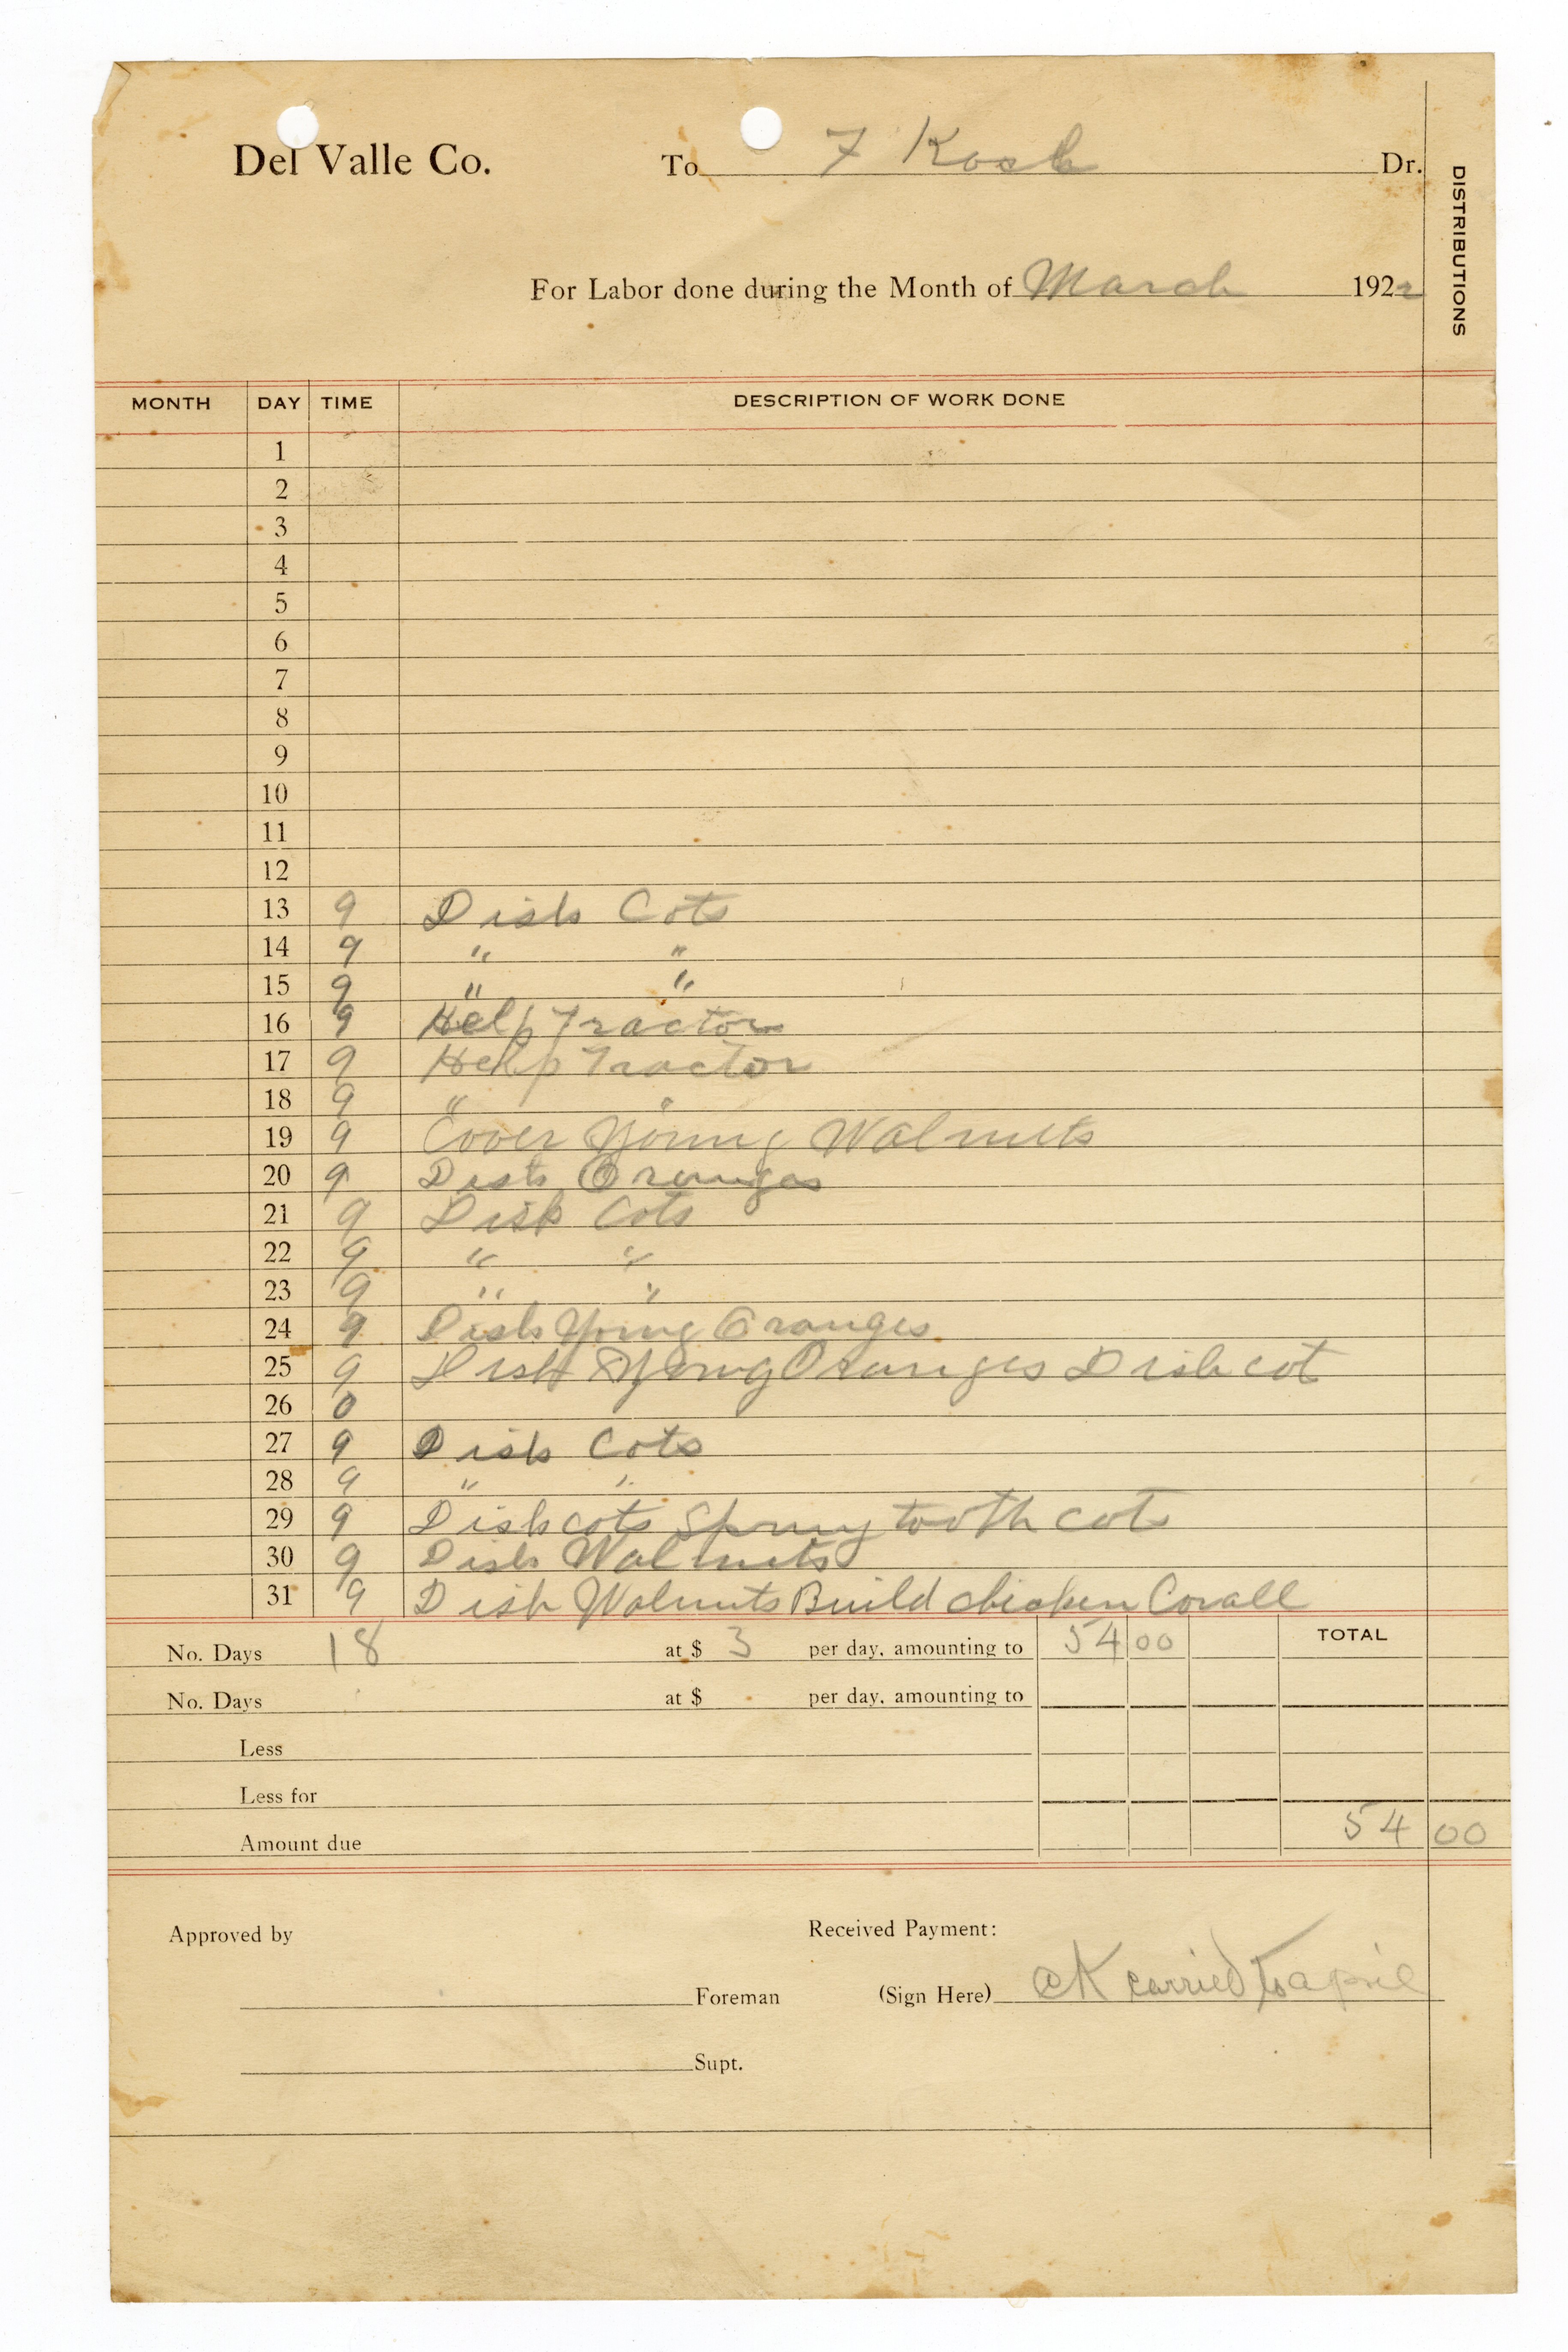 Del Valle Co. To F Kosk Dr.
DISTRIBUTIONS
For Labor done during the Month of March 1922
MONTH DAY TIME DESCRIPTION OF WORK DONE
1
2
3
4
5
6
7
8
9
10
11
12
13 9 Disk Cots
14 9 " "
15 9 " "
16 9 Help Tractor
17 9 Help Tractor
18 9 " "
19 9 Cover Young Walnuts
20 9 Disk Oranges
21 9 Disk Cots
22 9 " "
23 9 " "
24 9 Disk Young Oranges
25 9 Disk Young Oranges Disk cot
26 0
27 9 Disk Cots
28 9 " "
29 9 Disk cots Spring tooth cots
30 9 Disk Walnuts
31 9 Disk Walnuts Build chicken Corall
No. Days 18 at $ 3 per day, amounting to 54 00 TOTAL
No. Days at $ per day, amounting to
Less
Less for
Amount due 54 00
Approved by Received Payment:
Foreman (Sign Here) carried to april
Supt.